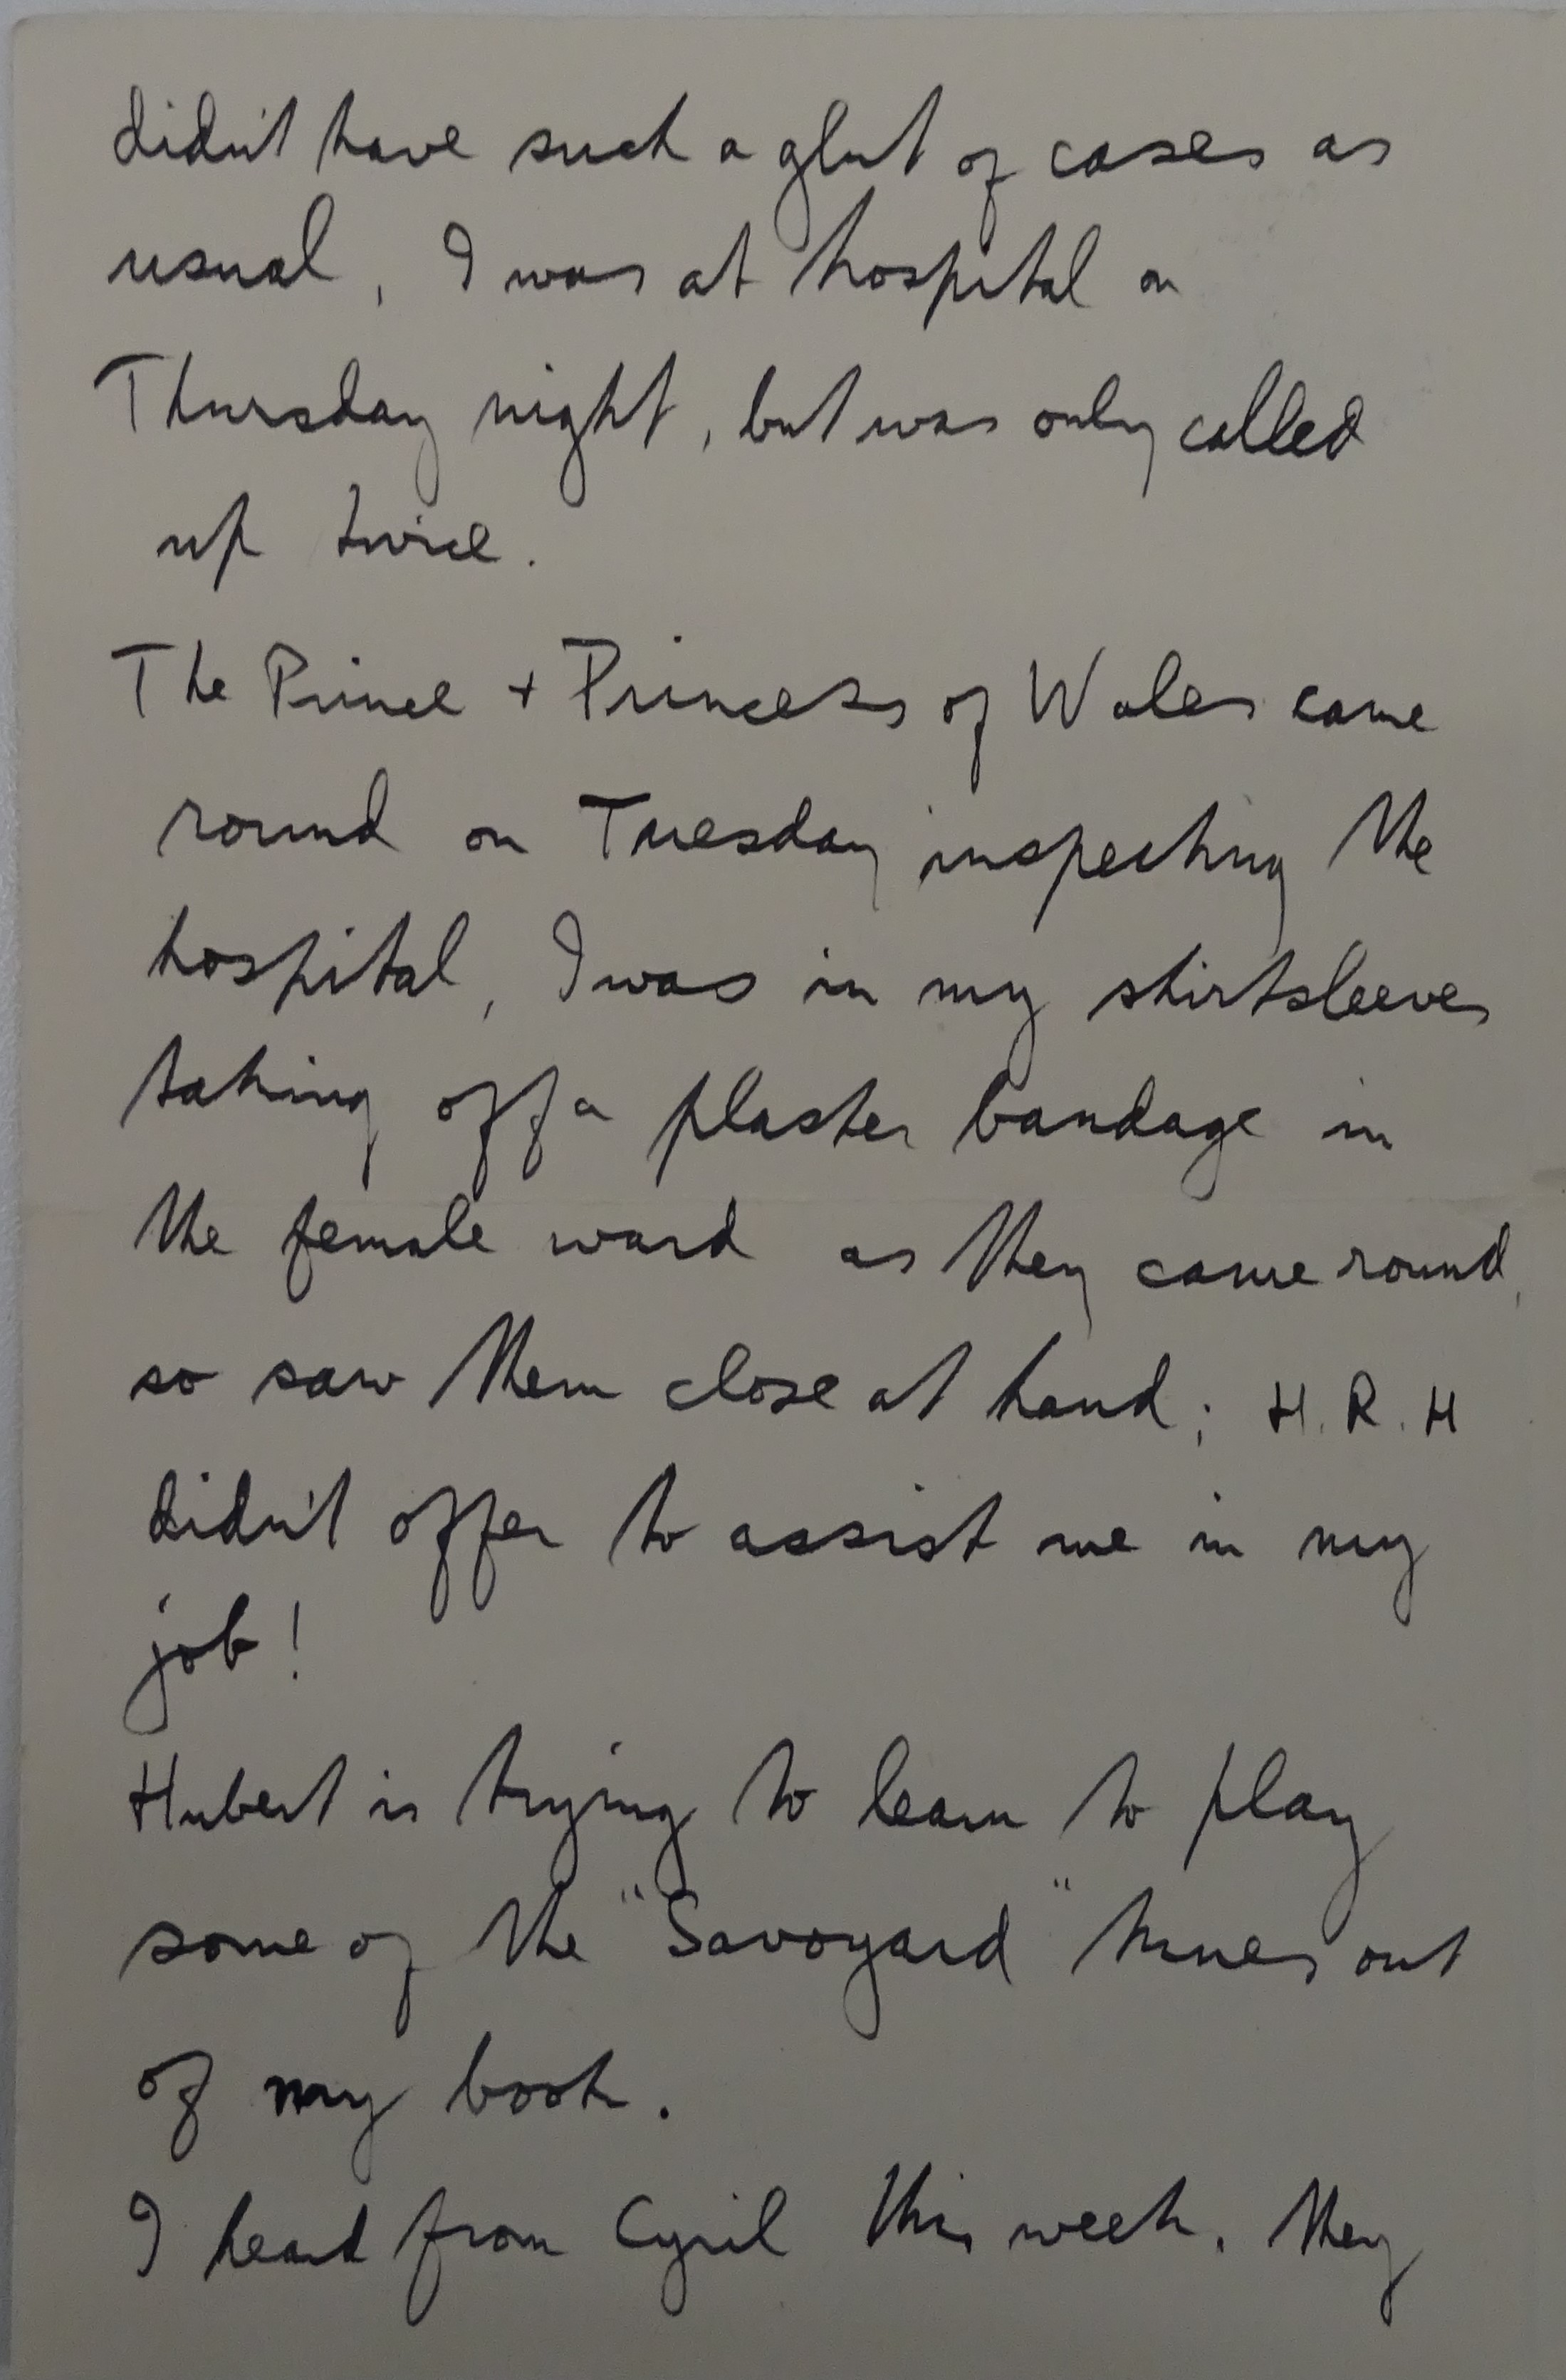 didn't have such a glut of cases as
usual, I was at hospital on
Thursday night, but was only called
up twice.
The Prince + Princess of Wales came
round on Tuesday inspecting the
hospital, I was in my shirtsleeves
taking off a plaster bandage in
the female ward as they came round,
so saw them close at hand; H.R.H
didn't offer to assist me in my
job!
Hubert is trying to learn to play
some of the "Savoyard" tunes out
of my book.
I heard from Cyril this week. They